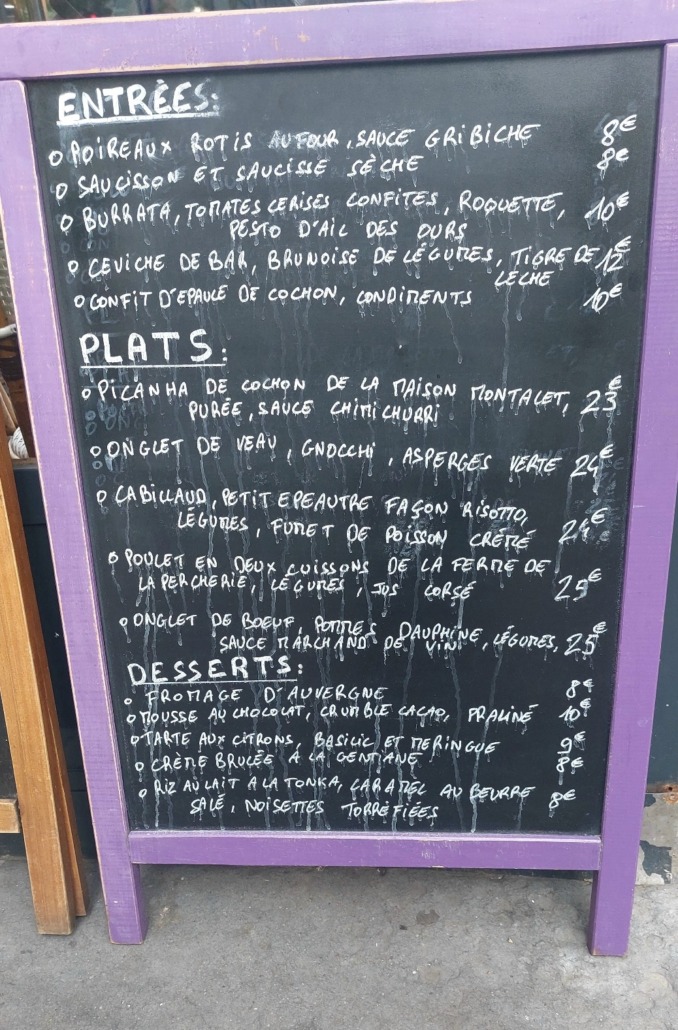 ENTRÉES:
o POIREAUX ROTIS AU FOUR, SAUCE GRIBICHE 8€
o SAUCISSON ET SAUCISSE SÈCHE 8€
o BURRATA, TOMATES CERISES CONFITES, ROQUETTE, 10€
PESTO D'AIL DES OURS
o CEVICHE DE BAR, BRUNOISE DE LÉGUMES, TIGRE DE 12€
LECHE
o CONFIT D'EPAULE DE COCHON, CONDIMENTS 10€
PLATS:
o PICANHA DE COCHON DE LA MAISON MONTALET, 23€
PURÉE, SAUCE CHIMICHURRI
o ONGLET DE VEAU, GNOCCHI, ASPERGES VERTE 24€
o CABILLAUD, PETIT EPEAUTRE FAÇON RISOTTO,
LÉGUMES, FUMET DE POISSON CRÉMÉ 24€
o POULET EN DEUX CUISSONS DE LA FERME DE
LA PERCHERIE, LÉGUMES, JUS CORSÉ 25€
o ONGLET DE BOEUF, POMMES DAUPHINE, LÉGUMES, 25€
SAUCE MARCHAND DE VIN
DESSERTS:
o FROMAGE D'AUVERGNE 8€
o MOUSSE AU CHOCOLAT, CRUMBLE CACAO, PRALINÉ 10€
o TARTE AUX CITRONS, BASILIC ET MERINGUE 9€
o CRÈME BRULÉE A LA GENTIANE 8€
o RIZ AU LAIT A LA TONKA, CARAMEL AU BEURRE
SALÉ, NOISETTES TORRÉFIÉES 8€